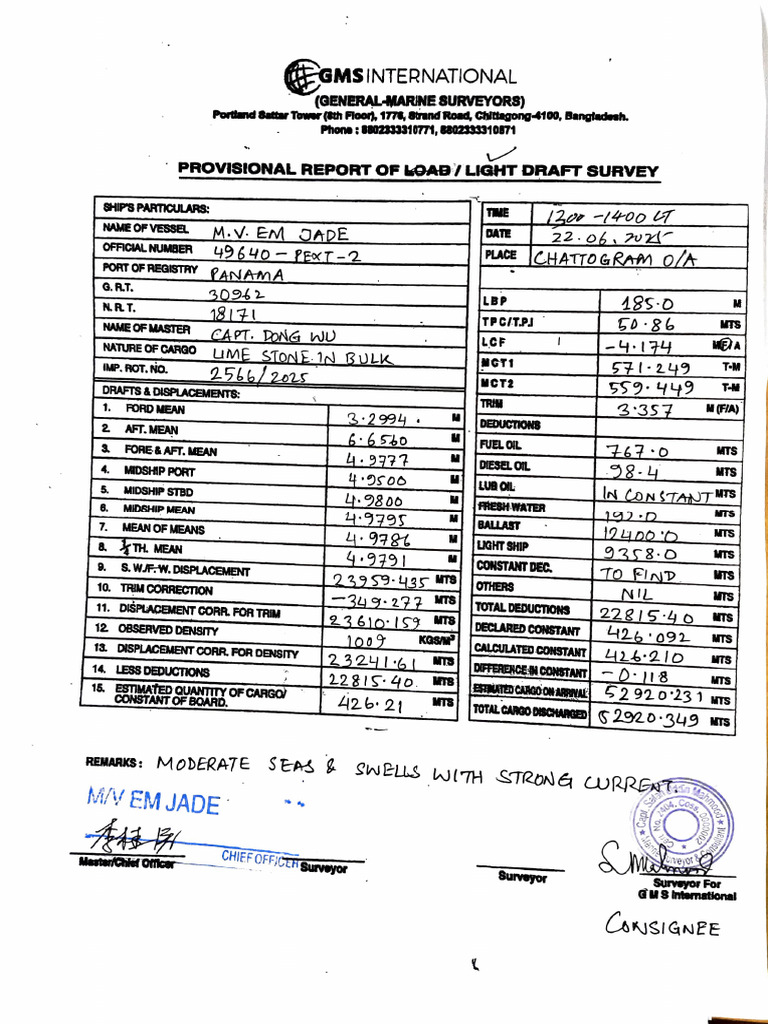 GMS INTERNATIONAL
(GENERAL-MARINE SURVEYORS)
Portland Sattar Tower (8th Floor), 1776, Strand Road, Chittagong-4100, Bangladesh.
Phone : 8802333310771, 8802333310871
PROVISIONAL REPORT OF LOAD / LIGHT DRAFT SURVEY
SHIP'S PARTICULARS:
NAME OF VESSEL M.V. EM JADE
OFFICIAL NUMBER 49640-PEXT-2
PORT OF REGISTRY PANAMA
G. R.T. 30962
N. R.T. 18171
NAME OF MASTER CAPT. DONG WU
NATURE OF CARGO LIME STONE IN BULK
IMP. ROT. NO. 2566/2025
DRAFTS & DISPLACEMENTS:
1. FORD MEAN 3.2994 M
2. AFT. MEAN 6.6560 M
3. FORE & AFT. MEAN 4.9777 M
4. MIDSHIP PORT 4.9500 M
5. MIDSHIP STBD 4.9800 M
6. MIDSHIP MEAN 4.9795 M
7. MEAN OF MEANS 4.9786 M
8. ¾ TH. MEAN 4.9791 M
9. S. W./F. W. DISPLACEMENT 23959.435 MTS
10. TRIM CORRECTION -349.277 MTS
11. DISPLACEMENT CORR. FOR TRIM 23610.159 MTS
12. OBSERVED DENSITY 1009 KGS/M³
13. DISPLACEMENT CORR. FOR DENSITY 23241.61 MTS
14. LESS DEDUCTIONS 22815.40 MTS
15. ESTIMATED QUANTITY OF CARGO/
CONSTANT OF BOARD. 426.21 MTS
TIME 1300-1400 LT
DATE 22.06.2025
PLACE CHATTOGRAM O/A
LBP 185.0 M
TPC/T.P.I 50.86 MTS
LCF -4.174 M(F) A
MCT1 571.249 T-M
MCT2 559.449 T-M
TRIM 3.357 M (F/A)
DEDUCTIONS
FUEL OIL 767.0 MTS
DIESEL OIL 98.4 MTS
LUB OIL IN CONSTANT MTS
FRESH WATER 192.0 MTS
BALLAST 12400.0 MTS
LIGHT SHIP 9358.0 MTS
CONSTANT DEC. TO FIND MTS
OTHERS NIL MTS
TOTAL DEDUCTIONS 22815.40 MTS
DECLARED CONSTANT 426.092 MTS
CALCULATED CONSTANT 426.210 MTS
DIFFERENCE IN CONSTANT -0.118 MTS
ESTIMATED CARGO ON ARRIVAL 52920.231 MTS
TOTAL CARGO DISCHARGED 52920.349 MTS
REMARKS: MODERATE SEAS & SWELLS WITH STRONG CURRENT.
M/V EM JADE
CHIEF OFFICER
Master/Chief Officer
Surveyor
Surveyor
Surveyor For
G M S International
CONSIGNEE